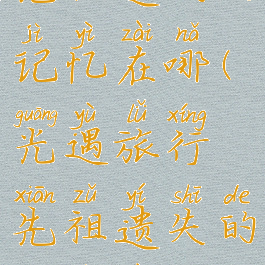 jì yì zài nǎ
记忆在哪(
guāng yù lǚ xíng
光遇旅行
xiān zǔ yí shī de
先祖遗失的